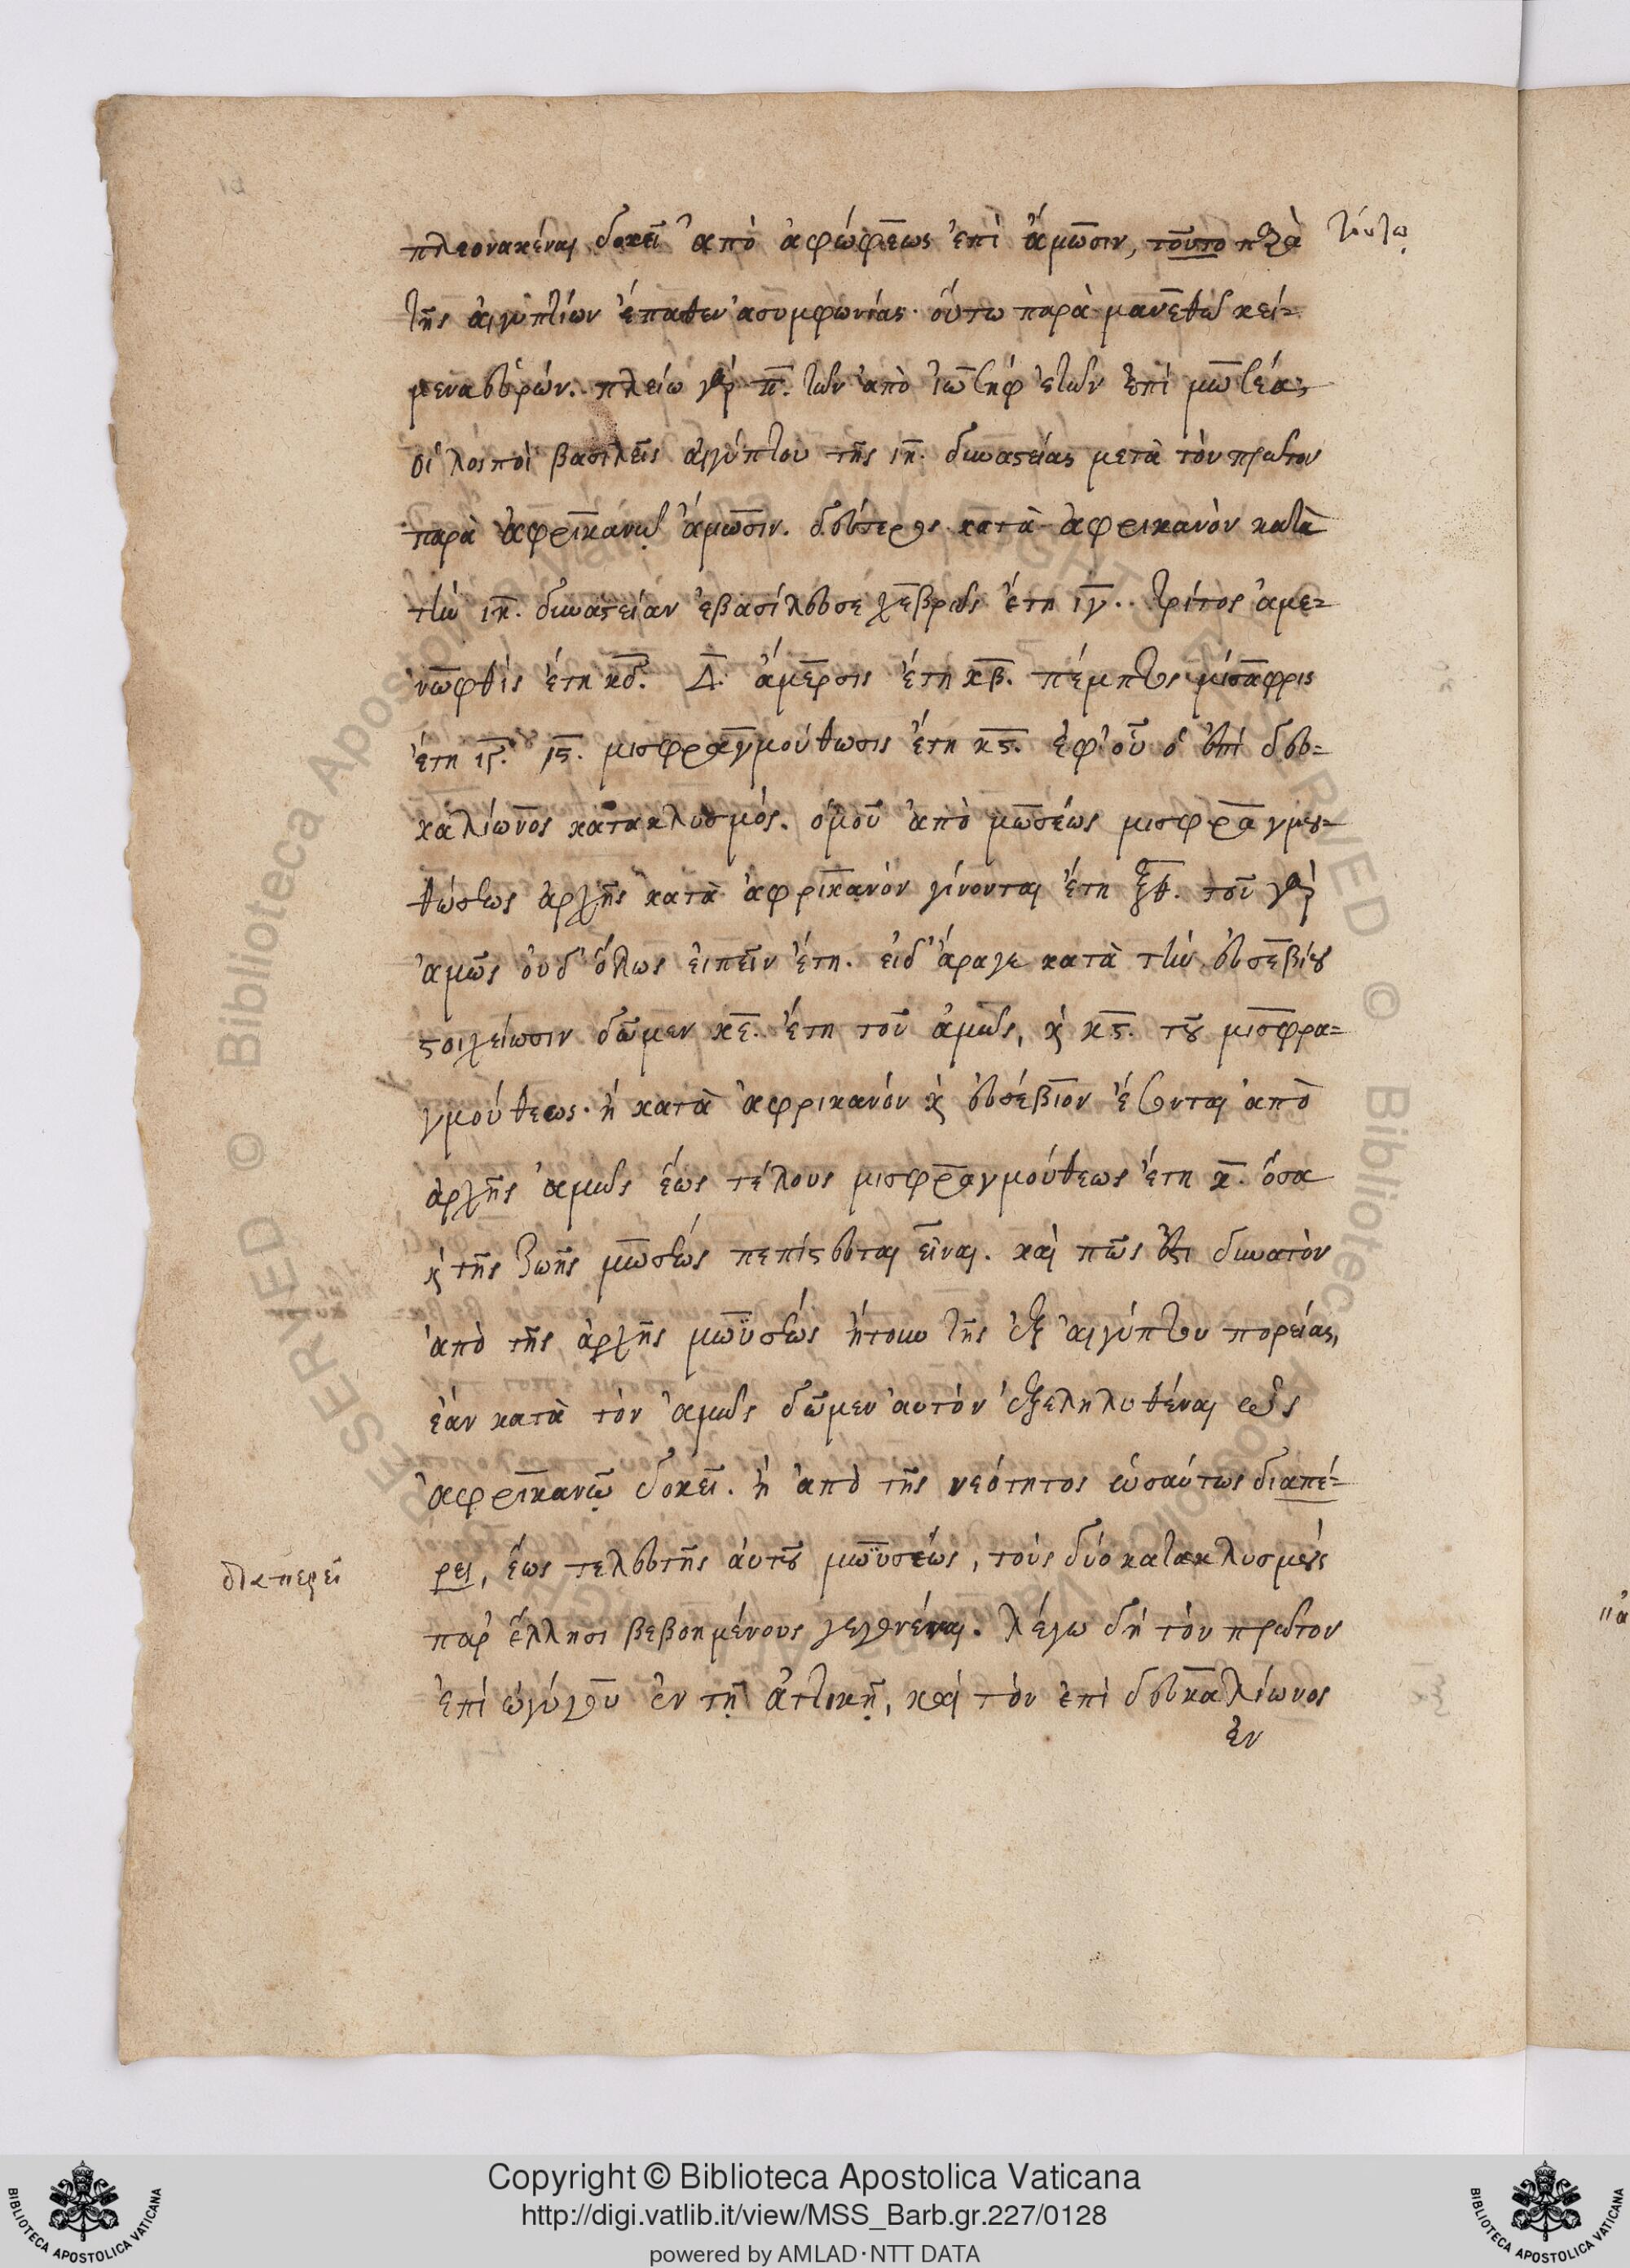 πλεονακέναι δοκεῖ ἀπὸ ἀφώφεως ἐπὶ ἄμωσιν, τοῦτο παρὰ τούτῳ
τῆς αἰγυπτίων ἔπαθεν ἀσυμφωνίας. οὕτω παρὰ μανεθῶ κεί-
μενα εὑρών. πλείω γὰρ π. τῶν ἀπὸ ἰωσὴφ ἐτῶν ἐπὶ μωσέα,
οἱ λοιποὶ βασιλεῖς αἰγύπτου τῆς ιη. δυναστείας μετὰ τὸν πρῶτον
παρὰ ἀφρικανῷ ἄμωσιν. δεύτερος κατὰ ἀφρικανὸν κατὰ
τὴν ιη. δυναστείαν ἐβασίλευσε χεβρὼς ἔτη ιγ. τρίτος ἀμε-
νωφθὶς ἔτη κδ. Δ. ἄμερσις ἔτη κβ. πέμπτος μίσαφρις
ἔτη ιγ. ις. μισφραγμούθωσις ἔτη κς. ἐφ' οὗ ὁ ἐπὶ δευ-
καλίωνος κατακλυσμός. ὁμοῦ ἀπὸ μωσέως μισφραγμου-
θώσεως ἀρχῆς κατὰ ἀφρικανὸν γίνονται ἔτη ξθ. τοῦ γὰρ
ἀμῶς οὐδ' ὅλως εἰπεῖν ἔτη. εἰδ' ἄραγε κατὰ τὴν εὐσεβίου
στοιχείωσιν δῶμεν κε. ἔτη τοῦ ἀμὼς, κὶ κς. τοῦ μισφρα-
γμούθεως. ἢ κατὰ ἀφρικανόν κὶ εὐσέβιον ἔσονται ἀπὸ
ἀρχῆς ἀμὼς ἕως τέλους μισφραγμούθεως ἔτη κ. ὅσα
κὶ τῆς ζωῆς μωσέως πεπίστευται εἶναι. καὶ πῶς ἔτι δυνατὸν
ἀπὸ τῆς ἀρχῆς μωϋσέως ἤτουν τῆς ἐξ αἰγύπτου πορείας,
ἐάν κατὰ τὸν ἀμὼς δῶμεν αὐτὸν ἐξεληλυθέναι ὡς
ἀφρικανῷ δοκεῖ. ἢ ἀπὸ τῆς νεότητος ὡσαύτως διαπέ-
διαπερεῖ ρει, ἕως τελευτῆς αὐτοῦ μωϋσέως, τοὺς δύο κατακλυσμοὺς
παρ' ἕλλησι βεβοημένους γεγονέναι. λέγω δὴ τὸν πρῶτον
ἐπὶ ὠγύγου ἐν τῇ ἀττικῇ, καὶ τὸν ἐπὶ δευκαλίωνος
ἐν
Copyright © Biblioteca Apostolica Vaticana
http://digi.vatlib.it/view/MSS_Barb.gr.227/0128
powered by AMLAD·NTT DATA
BIBLIOTECA APOSTOLICA VATICANA
BIBLIOTECA APOSTOLICA VATICANA